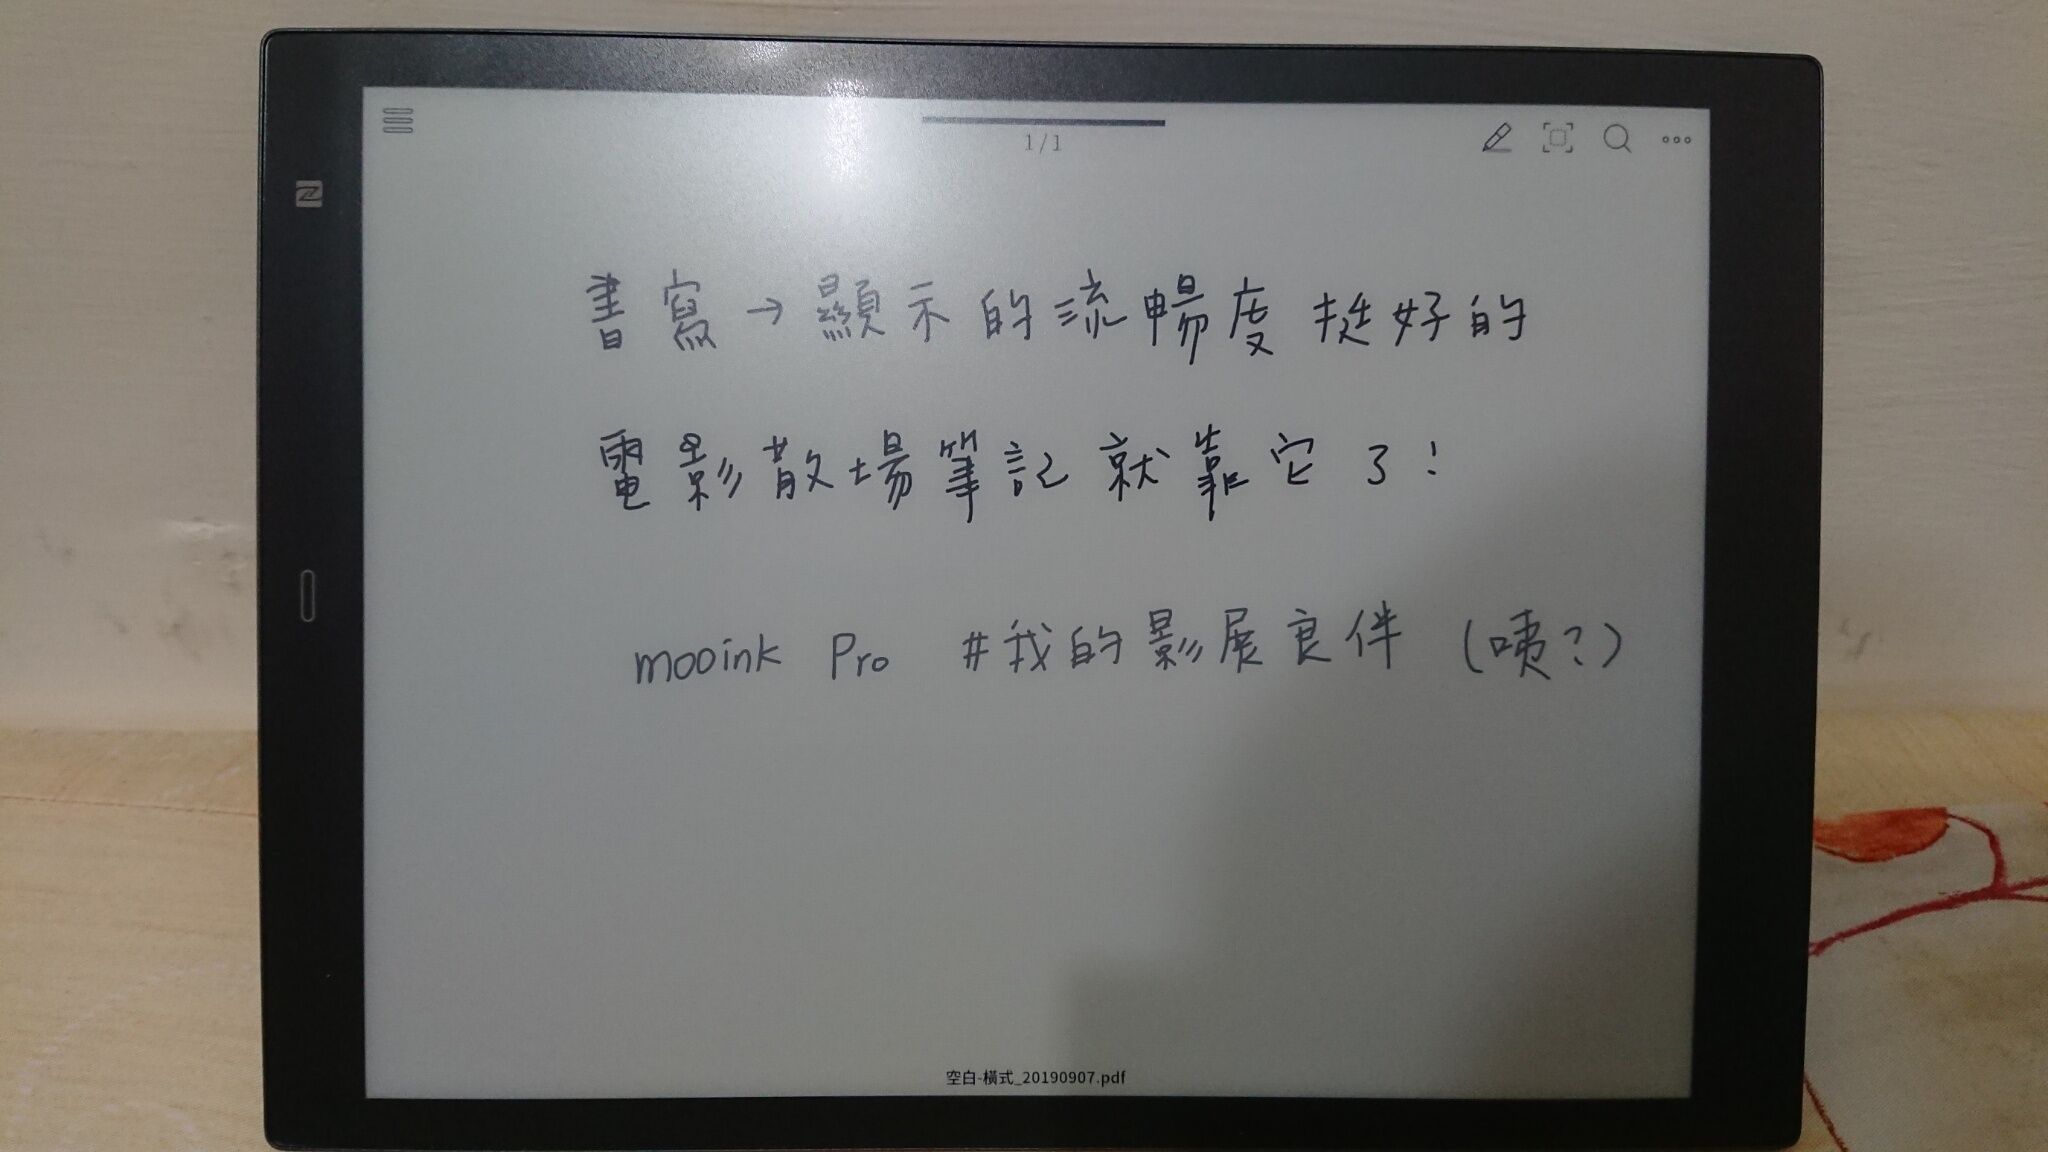 1/1
書寫→顯示的流暢度挺好的
電影散場筆記就靠它了!
mooink Pro #我的影展良伴(咦?)
空白-橫式_20190907.pdf